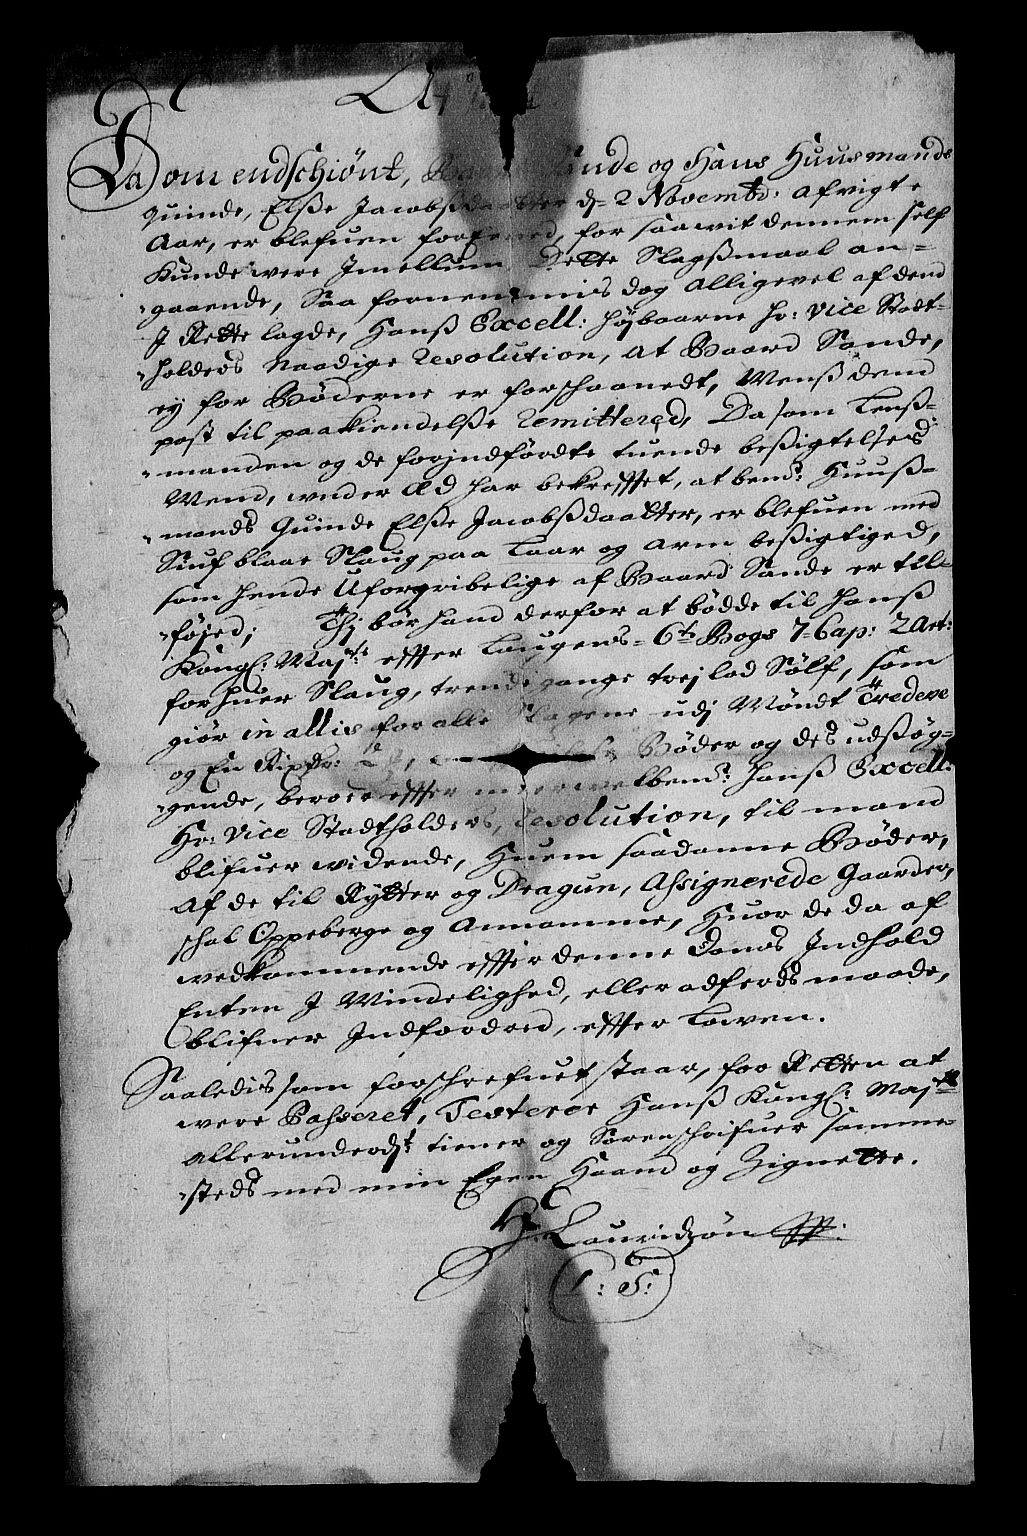 Da som endschiønt, Baar Sande og Hans Huusmands
quinde, Elsße Jacobsdaatter d= 2 Novembr: afvigte
Aar, er blefuen forEened, for saawit dennem self
kunde were Imellum Dette Slagsmaal an-
gaaende, Saa fornemmis dog alligevel af dend
J Rette lagde, Hanß Excell: Høybaarne Hr: Vice Stadt-
holders Naadige Resolution, at Baard Sande,
ey for Bøderne er forschaanedt, Menß dend
post til paakiendelsße Remittered, Da som Lenß-
manden og de forindførdte tuende beßigtelses
Mend, under Æd har bekrefftet, at bemt: Huuß-
mands Quinde Elsße Jacobsdaatter, er blefuen med
Siuf blaae Slaug paa Laar og Arm beßigtiged,
som hende Uforgribelige af Baard Sande er till-
føyed; Thj bør hand derfor at bødde til Hanß
Kongl: Mayts: effter Laugens= 6te Bogs 7= Cap: 2 Art:
for huer Slaug, trende gange trej lod Sølf, som
giør in allis for alle Slagene udj Møndt Tredeve
og En Rixdr: Bøder og des udsßøg-
gende, beroer effter Høybemt: Hanß Excell:
Hr: Vice Stadtholders, Resolution, til mand
blifuer vidende, Huem saadanne Bøder,
af de til Rytter og Dragun, Assignerede Gaarder,
schal Oppeberge og Annamme, Huor de da af
vedkommende effter denne Doms Indhold
Enten J Mindelighed, eller adferds maade,
blifuer Indfordred, effter Lowen.
Saaledis som forschrefuet staar, for Retten at
were Passeret, Testerer Hanß Kongl: Mayts
allerunderdt: tiener og Sorenschrifuer samme-
steds med min Egen Haand og Zignette.
Lauridzøn
L: S: